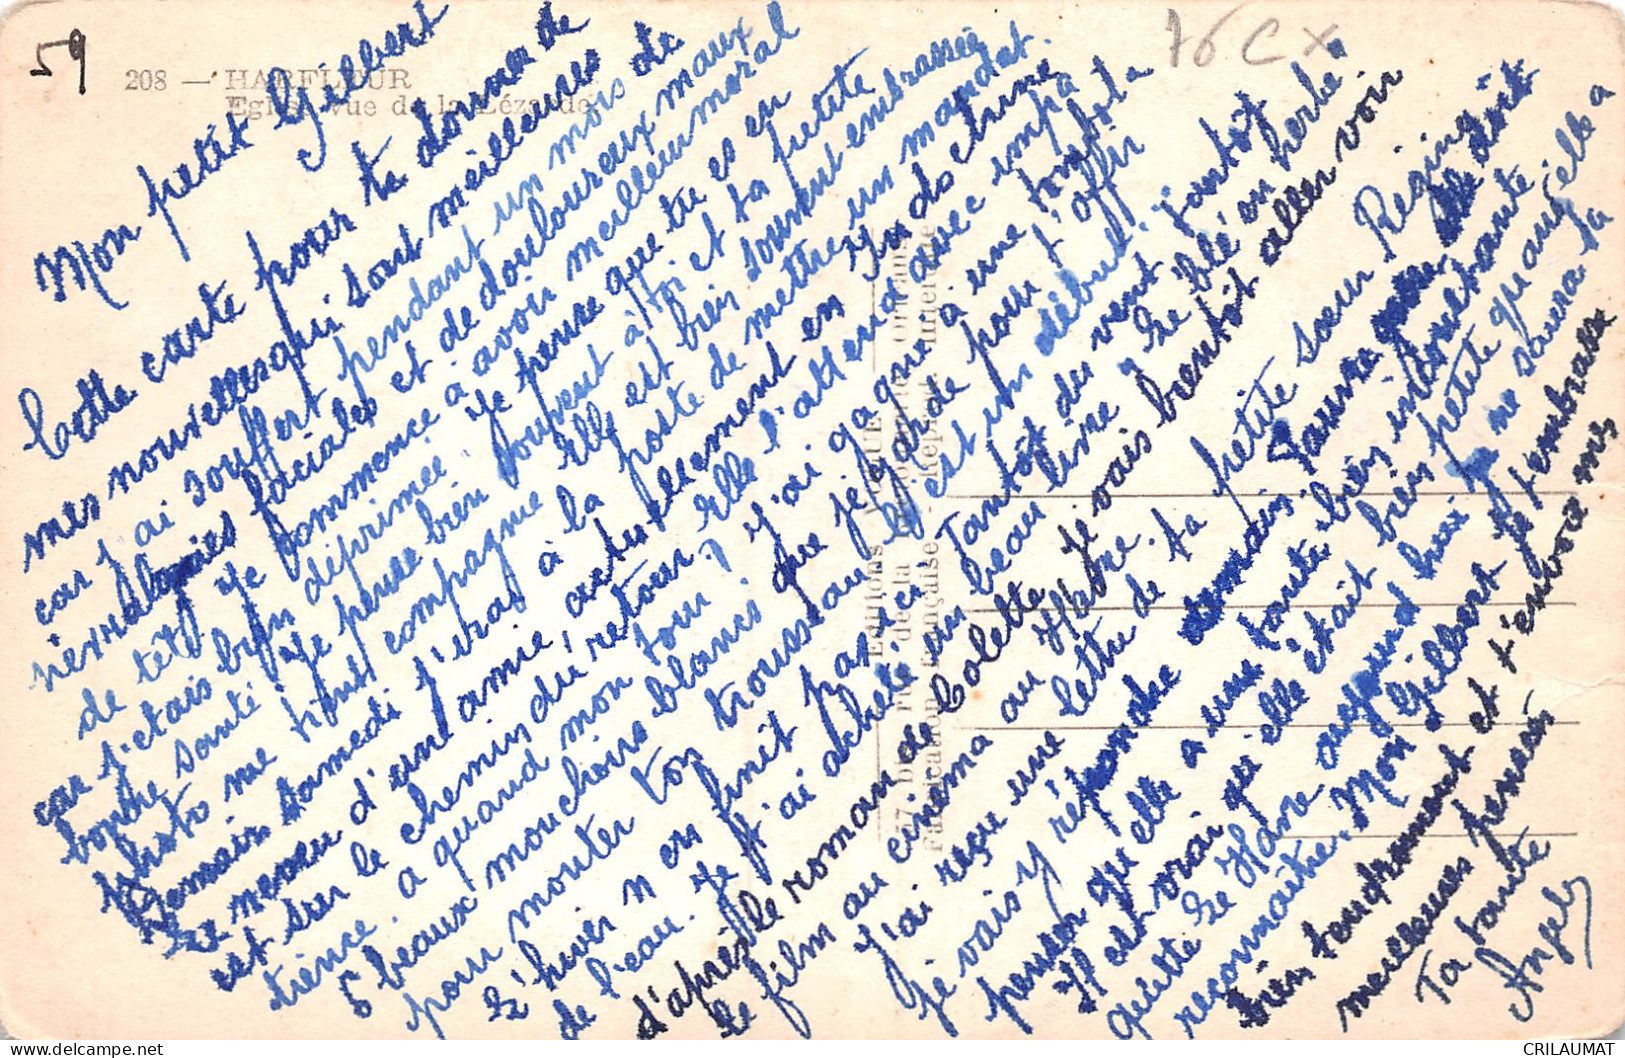 59
76 C x
208 — HARFLEUR
Eglise vue de la Lézarde
Mon petit Gilbert
Cette carte pour te donner de
mes nouvelles qui sont meilleures
car j'ai souffert pendant un mois de
névralgies faciales et de douloureux maux
de tête je commence à avoir meilleur moral
car j'étais bien déprimée. Je pense que tu es en
bonne santé je pense bien souvent à toi et ta petite
photo me tient compagnie elle est bien souvent embrassée
Demain samedi j'irai à la poste de mettre un mandat.
Le neveu d'une amie actuellement en Indochine
est sur le chemin du retour, elle l'attend avec impa
tience. a quand mon tour ? j'ai gagné à une tombola
5 beaux mouchoirs blancs que je garde pour t'offrir
pour monter ton trousseau c'est un début.
L'hiver n en finit pas ici tantôt du vent tantôt
de l'eau. Je j'ai acheté un beau livre "Le blé en herbe"
d'après le roman de Colette je vais bientôt aller voir
le film au cinéma au Havre.
J'ai reçu une lettre de ta petite sœur Régine
je vais y répondre demain Pauvre elle doit
penser qu'elle a une tante bien indoustante
Il est vrai qu'elle était bien petite quand elle a
quitté Le Havre aujourd'hui je ne saura la
reconnaître. Mon Gilbert je t'embrasse
bien tendrement et t'envoie mes
meilleures pensées
Ta tante
Angel
CRILAUMAT